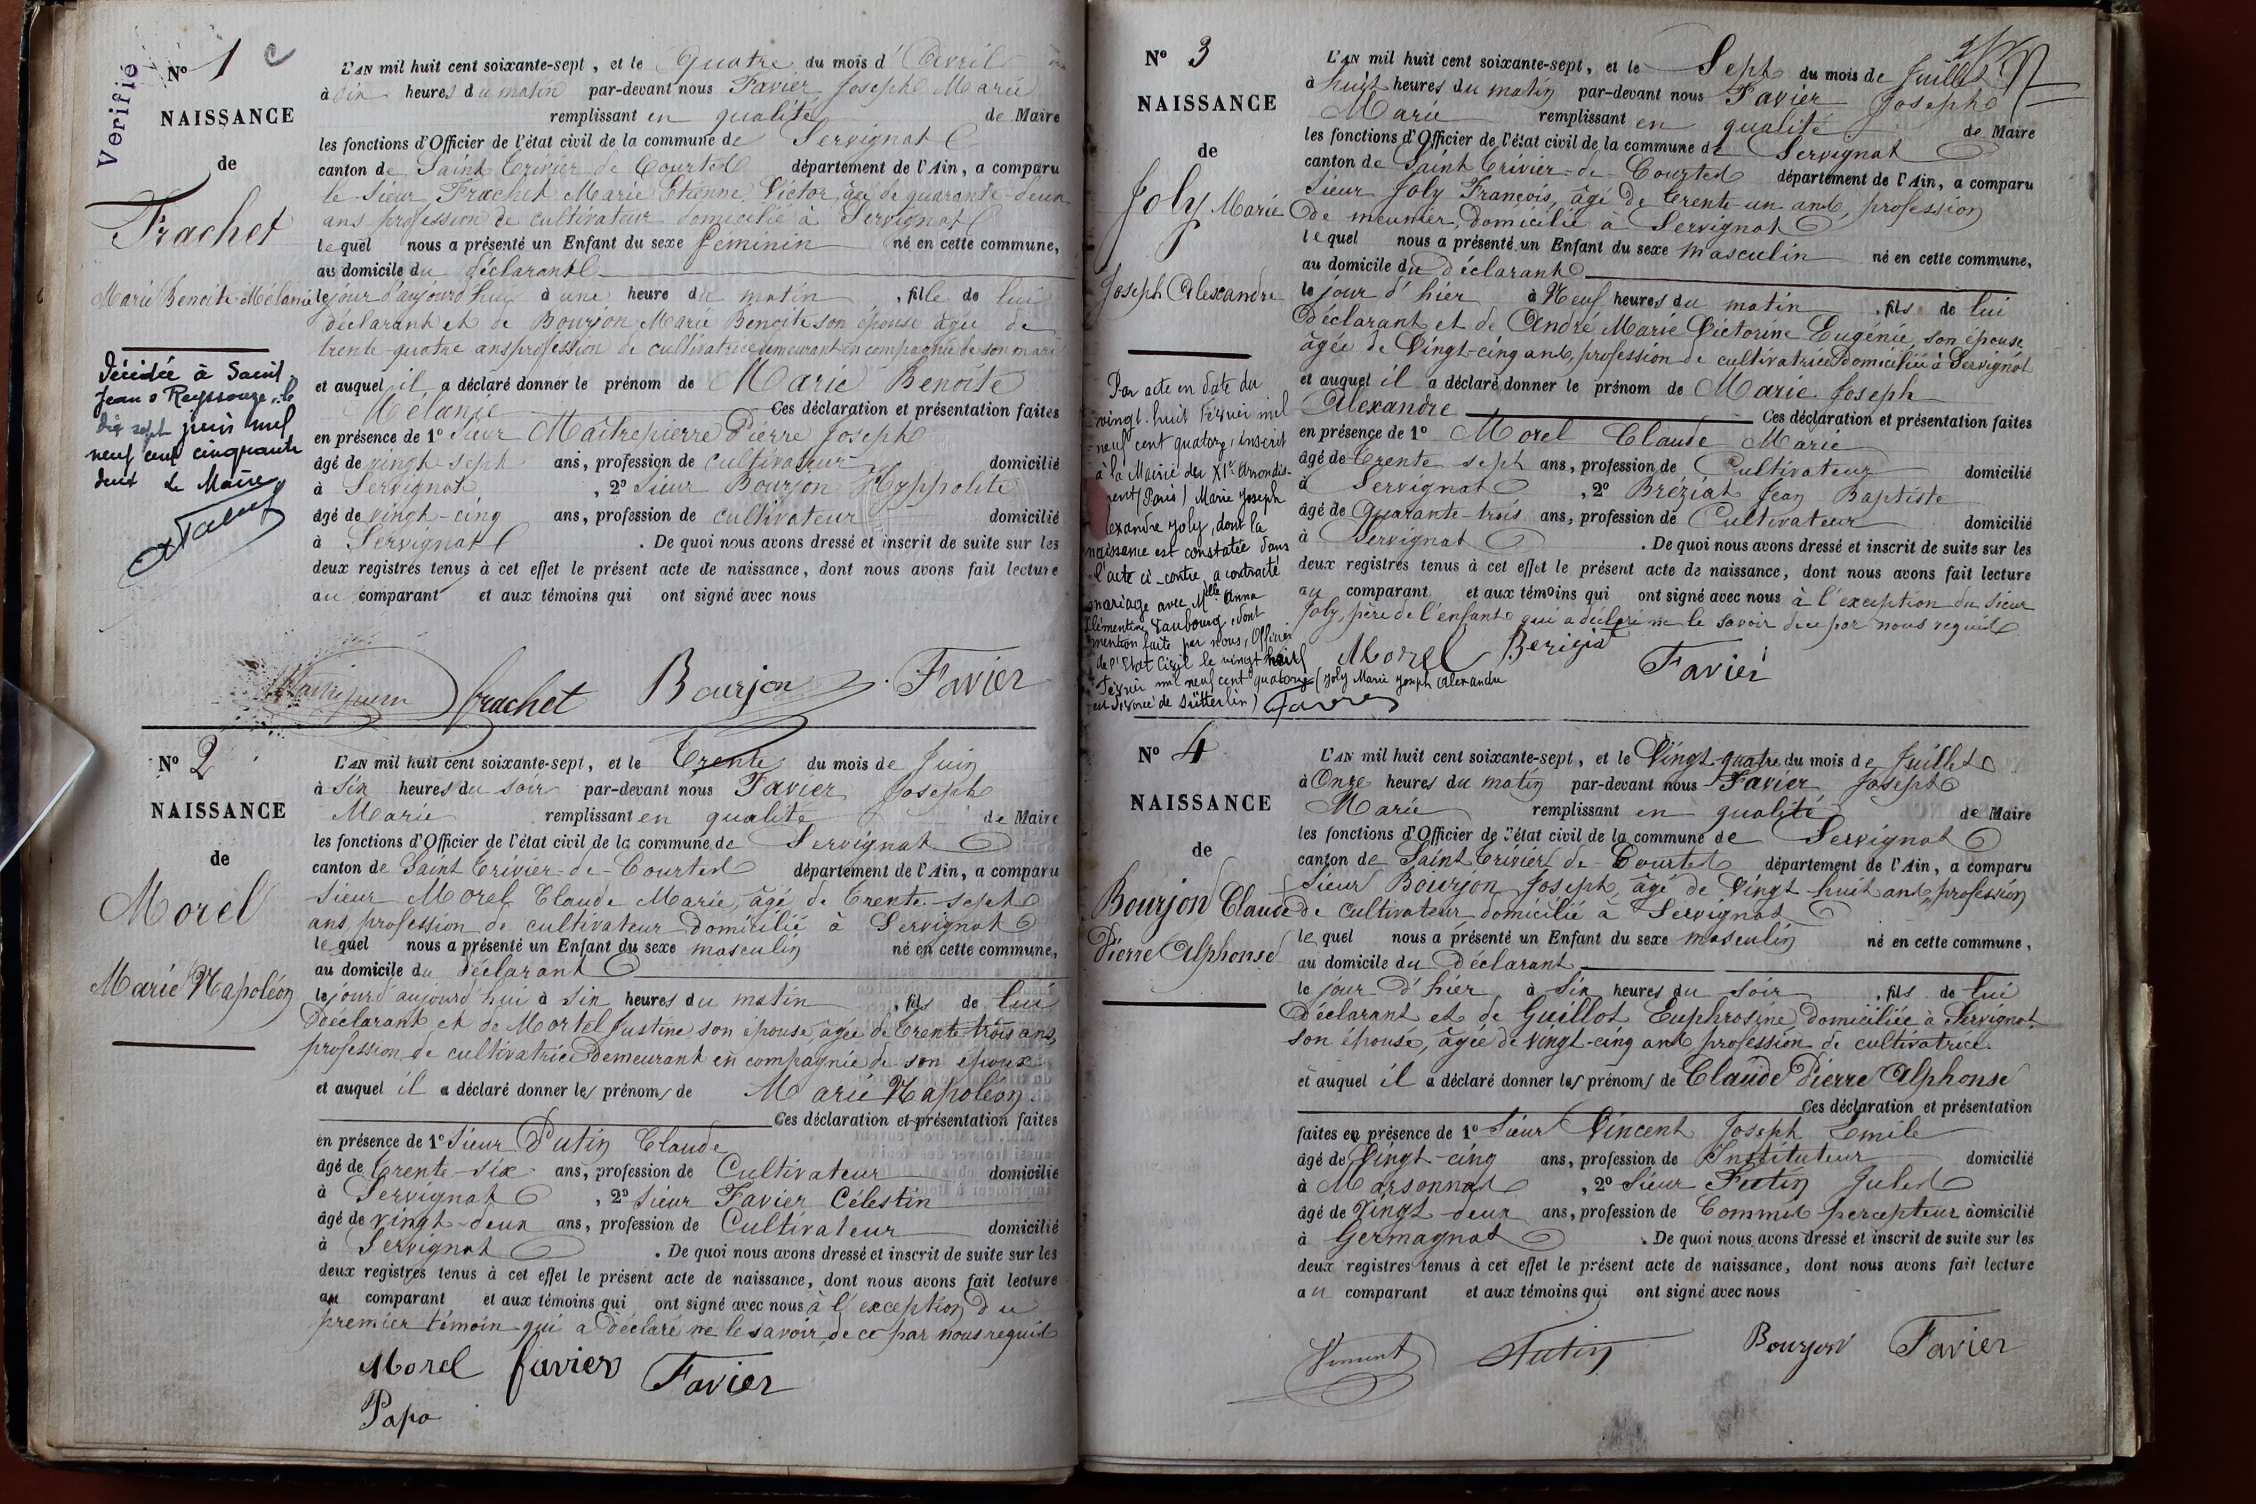 Verifié
Nº 1
NAISSANCE
de
Frachet
Marie Benoite Mélanie
Décédée à Saint
Jean s Reyssouze, le
dix sept juin mil
neuf cent cinquante
deux Le Maire
L'AN mil huit cent soixante-sept, et le Quatre du mois d'Avril
à six heures du matin par-devant nous Favier Joseph Marie
remplissant en qualité de Maire
les fonctions d'Officier de l'état civil de la commune de Servignat
canton de Saint Trivier de Courtes département de l'Ain, a comparu
le Sieur Frachet Marie Etienne Victor, âgé de quarante-deux
ans profession de cultivateur domicilié à Servignat
lequel nous a présenté un Enfant du sexe féminin né en cette commune,
au domicile du déclarant
le jour d'aujourd'huy à une heure du matin, fille de lui
déclarant et de Bourjon Marie Benoite son épouse âgée de
trente-quatre ans profession de cultivatrice demeurant en compagnie de son mari
et auquel il a déclaré donner le prénom de Marie Benoîte
Mélanie Ces déclaration et présentation faites
en présence de 1º Sieur Maitrepierre Pierre Joseph
âgé de vingt-sept ans, profession de cultivateur domicilié
à Servignat, 2º Sieur Bourjon Hyppolite
âgé de vingt-cinq ans, profession de cultivateur domicilié
à Servignat. De quoi nous avons dressé et inscrit de suite sur les
deux registres tenus à cet effet le présent acte de naissance, dont nous avons fait lecture
au comparant et aux témoins qui ont signé avec nous
frachet Bourjon Favier
Nº 2
NAISSANCE
de
Morel
Marie Napoléon
L'AN mil huit cent soixante-sept, et le Trente du mois de Juin
à six heures du soir par-devant nous Favier Joseph
Marie remplissant en qualité de Maire
les fonctions d'Officier de l'état civil de la commune de Servignat
canton de Saint Trivier-de-Courtes département de l'Ain, a comparu
Sieur Morel Claude Marie, âgé de Trente-sept
ans, profession de cultivateur domicilié à Servignat
lequel nous a présenté un Enfant du sexe masculin né en cette commune,
au domicile du déclarant
le jour d'aujourd'hui à six heures du matin, fils de lui
Déclarant et de Mortel Justine son épouse, âgée de trente trois ans,
profession de cultivatrice demeurant en compagnie de son époux
et auquel il a déclaré donner les prénoms de Marie Napoléon
Ces déclaration et présentation faites
en présence de 1º Sieur Putin Claude
âgé de Trente-six ans, profession de Cultivateur domicilié
à Servignat, 2º Sieur Favier Célestin
âgé de vingt-deux ans, profession de Cultivateur domicilié
à Servignat. De quoi nous avons dressé et inscrit de suite sur les
deux registres tenus à cet effet le présent acte de naissance, dont nous avons fait lecture
au comparant et aux témoins qui ont signé avec nous à l'exception du
premier témoin qui a déclaré ne le savoir, de ce par nous requis
Morel favier Favier
Papa
Nº 3
NAISSANCE
de
Joly Marie
Joseph Alexandre
Par acte en date du
vingt-huit Février mil
neuf cent quatorze, inscrit
à la Mairie du XIe Arrondis-
(Paris) Marie Joseph
lexandre Joly, dont la
naissance est constatée dans
l'acte ci-contre, a contracté
mariage avec Melle Anna
Clémentine Vaubourg, dont
mention faite par nous, Officier
de l'Etat Civil le vingt huit
Février mil neuf cent quatorze (Joly Marie Joseph Alexandre
est divorcé de Sütterlin)
L'AN mil huit cent soixante-sept, et le Sept du mois de Juillet
à huit heures du matin par-devant nous Favier Joseph
Marie remplissant en qualité de Maire
les fonctions d'Officier de l'état civil de la commune de Servignat
canton de Saint Trivier-de-Courtes département de l'Ain, a comparu
Sieur Joly François, âgé de Trente-un ans, profession
de meunier, domicilié à Servignat
lequel nous a présenté un Enfant du sexe masculin né en cette commune,
au domicile du déclarant
le jour d'hier à Neuf heures du matin, fils de lui
Déclarant et de André Marie Victorine Eugénie, son épouse
âgée de Vingt-cinq ans, profession de cultivatrice domiciliée à Servignat
et auquel il a déclaré donner le prénom de Marie Joseph
Alexandre Ces déclaration et présentation faites
en présence de 1º Morel Claude Marie
âgé de trente sept ans, profession de Cultivateur domicilié
à Servignat, 2º Bréziat Jean Baptiste
âgé de Quarante-trois ans, profession de Cultivateur domicilié
à Servignat. De quoi nous avons dressé et inscrit de suite sur les
deux registres tenus à cet effet le présent acte de naissance, dont nous avons fait lecture
au comparant et aux témoins qui ont signé avec nous à l'exception du sieur
Joly, père de l'enfant qui a déclaré ne le savoir de ce par nous requis
Morel Favier
Nº 4
NAISSANCE
de
Bourjon Claude
Pierre Alphonse
L'AN mil huit cent soixante-sept, et le Vingt quatre du mois de Juillet
à Onze heures du matin par-devant nous Favier Joseph
Marie remplissant en qualité de Maire
les fonctions d'Officier de l'état civil de la commune de Servignat
canton de Saint Trivier de Courtes département de l'Ain, a comparu
Sieur Bourjon Joseph, âgé de Vingt-huit ans, profession
de cultivateur domicilié à Servignat
lequel nous a présenté un Enfant du sexe masculin né en cette commune,
au domicile du Déclarant
le jour d'hier à six heures du soir, fils de lui
Déclarant et de Guillot Euphrosine, domiciliée à Servignat
son épouse, âgée de vingt-cinq ans profession de cultivatrice.
et auquel il a déclaré donner les prénoms de Claude Pierre Alphonse
Ces déclaration et présentation
faites en présence de 1º Sieur Vincent Joseph Emile
âgé de Vingt-cinq ans, profession de Instituteur domicilié
à Marsonnas, 2º Sieur Futin Jules
âgé de Vingt-deux ans, profession de Commis percepteur domicilié
à Germagnat. De quoi nous avons dressé et inscrit de suite sur les
deux registres tenus à cet effet le présent acte de naissance, dont nous avons fait lecture
au comparant et aux témoins qui ont signé avec nous
Vincent Futin Bourjon Favier